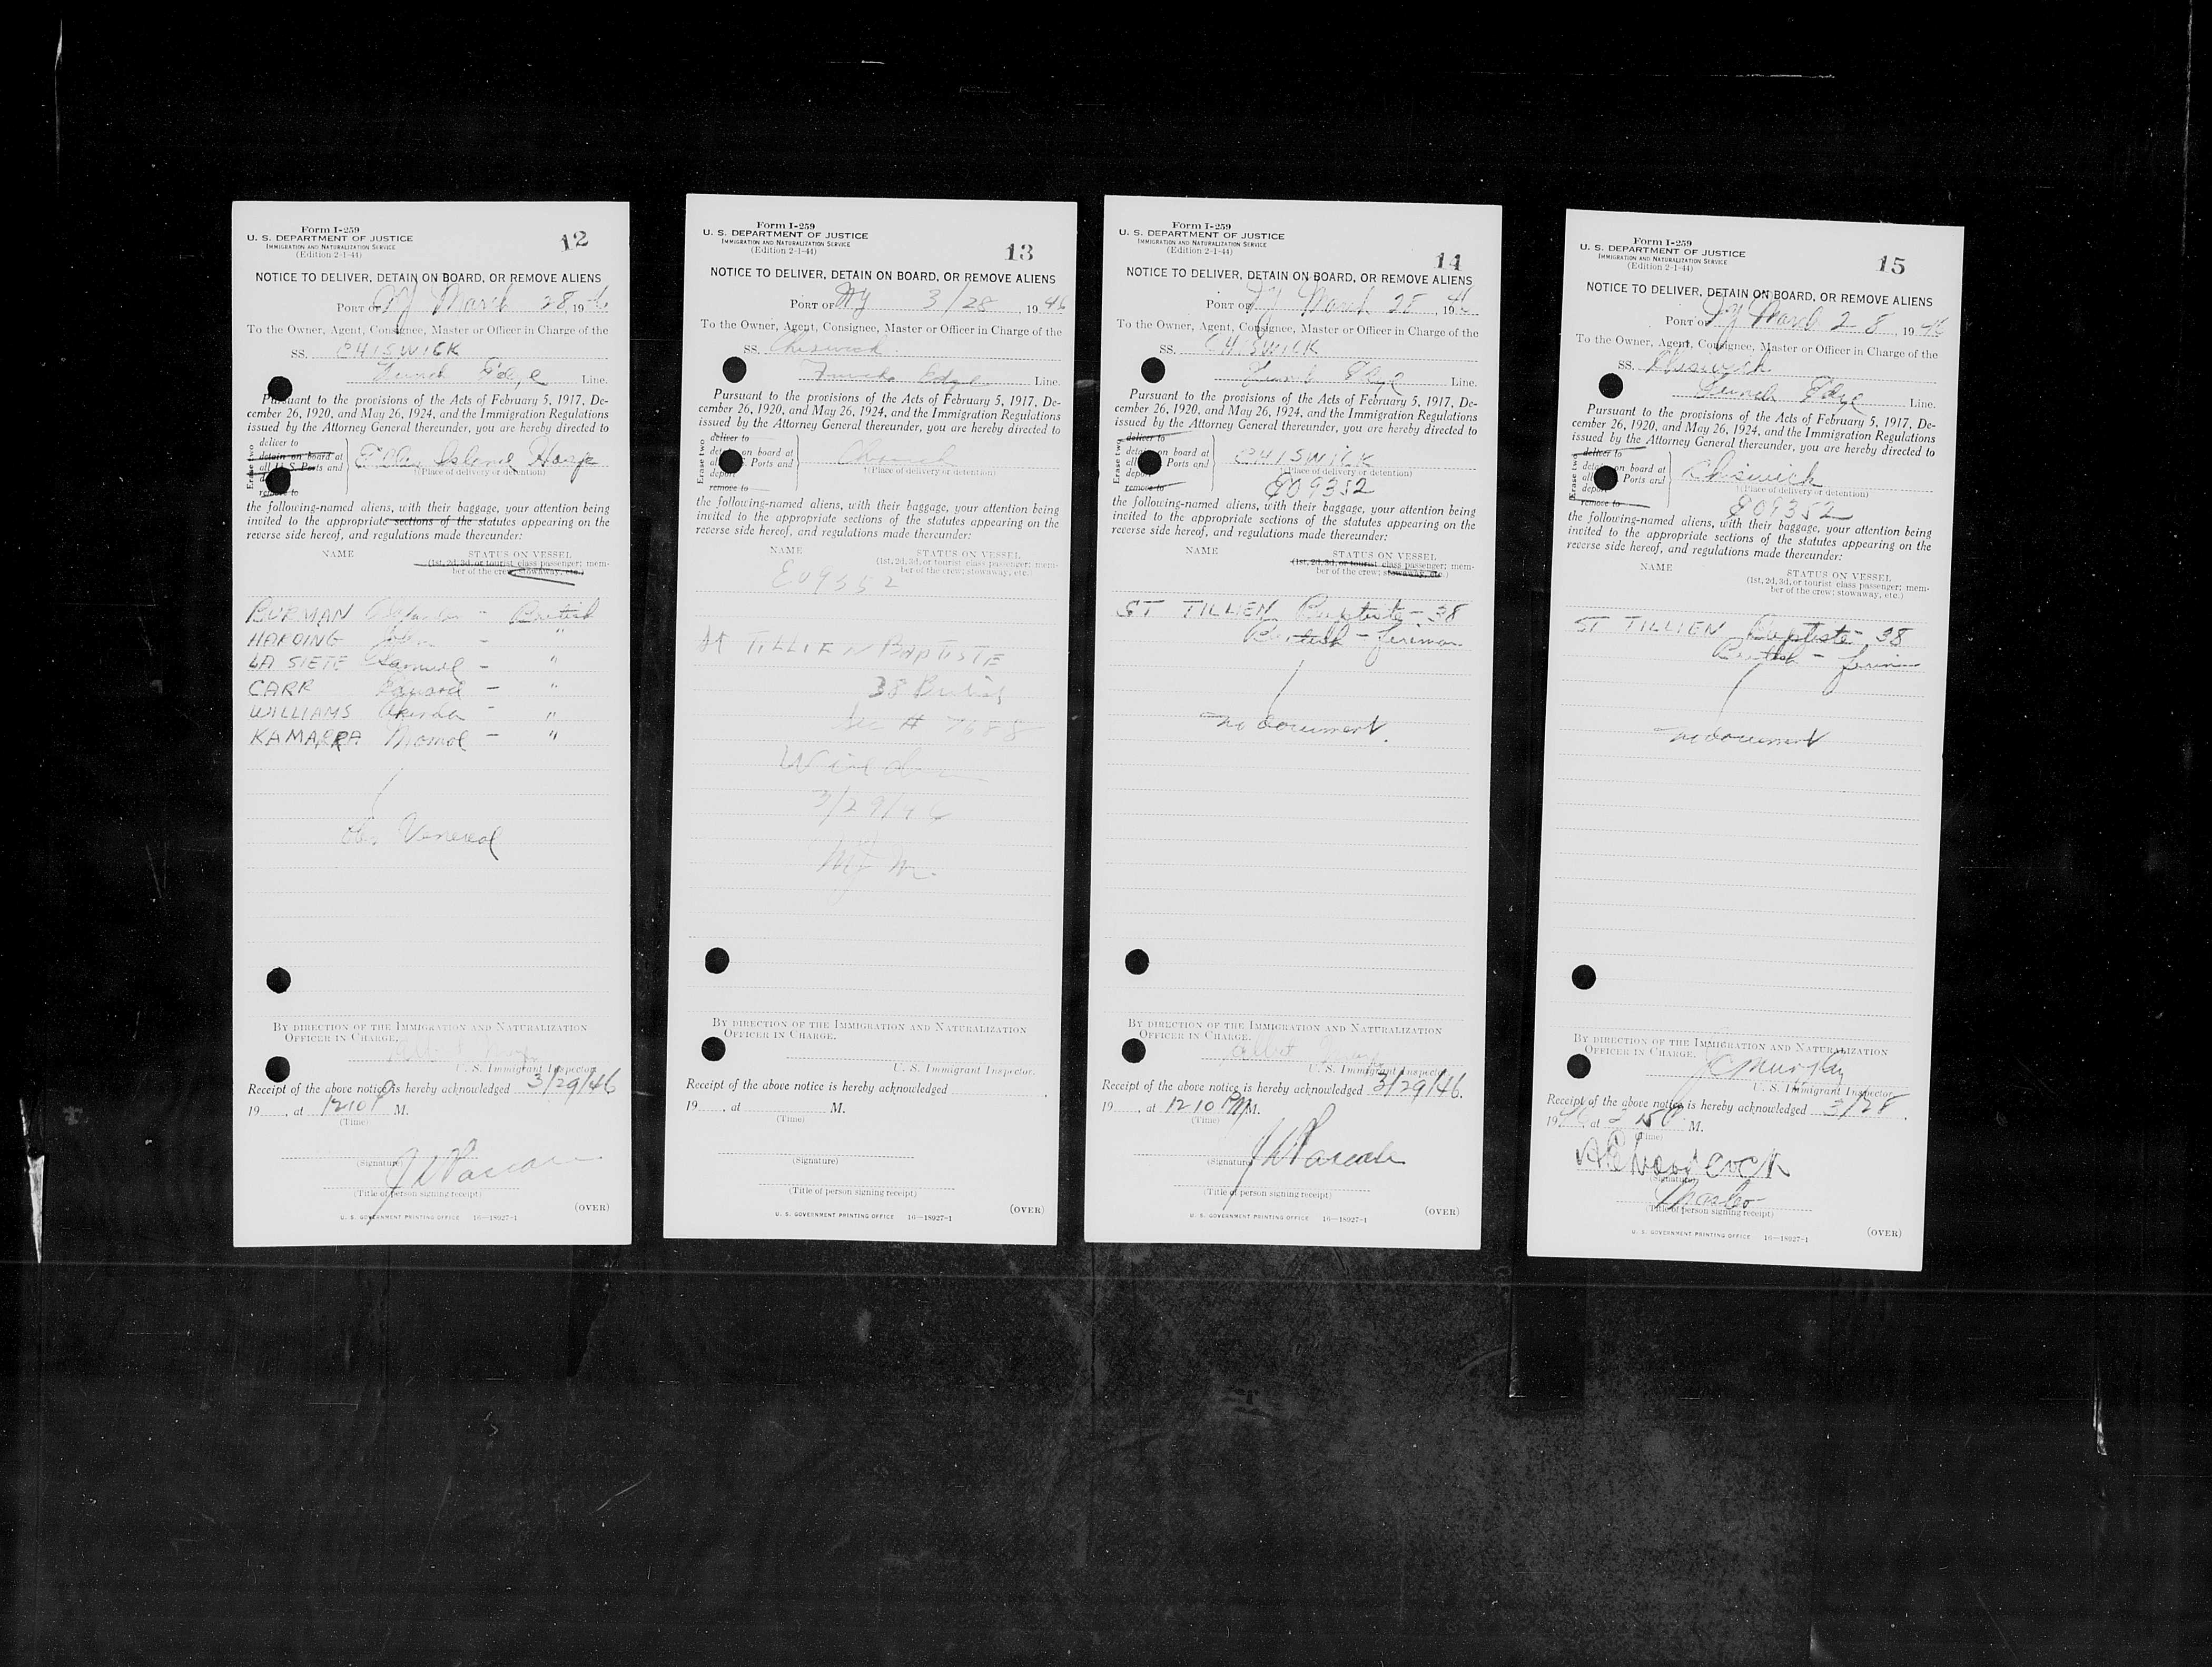 Form I-259
U. S. DEPARTMENT OF JUSTICE
IMMIGRATION AND NATURALIZATION SERVICE
(Edition 2-1-44)
12
NOTICE TO DELIVER, DETAIN ON BOARD, OR REMOVE ALIENS
PORT OF NY March 28, 1946
To the Owner, Agent, Consignee, Master or Officer in Charge of the
SS. CHISWICK
Furness Edye Line.
Pursuant to the provisions of the Acts of February 5, 1917, De-
cember 26, 1920, and May 26, 1924, and the Immigration Regulations
issued by the Attorney General thereunder, you are hereby directed to
Erase two
deliver to
detain on board at
all U. S. Ports and
remove to
Ellis Island Hosp
(Place of delivery or detention)
the following-named aliens, with their baggage, your attention being
invited to the appropriate sections of the statutes appearing on the
reverse side hereof, and regulations made thereunder:
NAME STATUS ON VESSEL
(1st, 2d, 3d, or tourist class passenger; mem-
ber of the crew; stowaway, etc.)
BURMAN - British
HARDING John - "
LA SIETE Samuel - "
CARR Edward - "
WILLIAMS - "
KAMARRA Momol - "
Venereal
BY DIRECTION OF THE IMMIGRATION AND NATURALIZATION
OFFICER IN CHARGE.
U. S. Immigrant Inspector.
Receipt of the above notice is hereby acknowledged 3/29/46
19 , at 1210 P M.
(Time)
(Signature)
(Title of person signing receipt)
U. S. GOVERNMENT PRINTING OFFICE 16—18927-1
(OVER)
Form I-259
U. S. DEPARTMENT OF JUSTICE
IMMIGRATION AND NATURALIZATION SERVICE
(Edition 2-1-44)
13
NOTICE TO DELIVER, DETAIN ON BOARD, OR REMOVE ALIENS
PORT OF NY 3/28, 1946
To the Owner, Agent, Consignee, Master or Officer in Charge of the
SS. Chiswick
Edye Line.
Pursuant to the provisions of the Acts of February 5, 1917, De-
cember 26, 1920, and May 26, 1924, and the Immigration Regulations
issued by the Attorney General thereunder, you are hereby directed to
Erase two
deliver to
on board at
Ports and
deport
remove to
(Place of delivery or detention)
the following-named aliens, with their baggage, your attention being
invited to the appropriate sections of the statutes appearing on the
reverse side hereof, and regulations made thereunder:
NAME STATUS ON VESSEL
(1st, 2d, 3d, or tourist class passenger; mem-
ber of the crew; stowaway, etc.)
E09352
St TILLIEN BAPTISTE
38 British
# 7688
3/29/46
BY DIRECTION OF THE IMMIGRATION AND NATURALIZATION
OFFICER IN CHARGE.
U. S. Immigrant Inspector.
Receipt of the above notice is hereby acknowledged
19 , at M.
(Time)
(Signature)
(Title of person signing receipt)
U. S. GOVERNMENT PRINTING OFFICE 16—18927-1
(OVER)
Form I-259
U. S. DEPARTMENT OF JUSTICE
IMMIGRATION AND NATURALIZATION SERVICE
(Edition 2-1-44)
14
NOTICE TO DELIVER, DETAIN ON BOARD, OR REMOVE ALIENS
PORT OF NY March 28, 1946
To the Owner, Agent, Consignee, Master or Officer in Charge of the
SS. CHISWICK
Furness Edye Line.
Pursuant to the provisions of the Acts of February 5, 1917, De-
cember 26, 1920, and May 26, 1924, and the Immigration Regulations
issued by the Attorney General thereunder, you are hereby directed to
Erase two
deliver to
on board at
Ports and
deport
remove to
CHISWICK
(Place of delivery or detention)
E09352
the following-named aliens, with their baggage, your attention being
invited to the appropriate sections of the statutes appearing on the
reverse side hereof, and regulations made thereunder:
NAME STATUS ON VESSEL
(1st, 2d, 3d, or tourist class passenger; mem-
ber of the crew; stowaway, etc.)
ST TILLIEN Baptiste - 38
British - fireman
no document
BY DIRECTION OF THE IMMIGRATION AND NATURALIZATION
OFFICER IN CHARGE.
Albert
U. S. Immigrant Inspector.
Receipt of the above notice is hereby acknowledged 3/29/46.
19 , at 1210 PM M.
(Time)
(Signature)
(Title of person signing receipt)
U. S. GOVERNMENT PRINTING OFFICE 16—18927-1
(OVER)
Form I-259
U. S. DEPARTMENT OF JUSTICE
IMMIGRATION AND NATURALIZATION SERVICE
(Edition 2-1-44)
15
NOTICE TO DELIVER, DETAIN ON BOARD, OR REMOVE ALIENS
PORT OF NY March 28, 1946
To the Owner, Agent, Consignee, Master or Officer in Charge of the
SS. Chiswick
Furness Edye Line.
Pursuant to the provisions of the Acts of February 5, 1917, De-
cember 26, 1920, and May 26, 1924, and the Immigration Regulations
issued by the Attorney General thereunder, you are hereby directed to
Erase two
deliver to
on board at
Ports and
deport
remove to
Chiswick
(Place of delivery or detention)
E09352
the following-named aliens, with their baggage, your attention being
invited to the appropriate sections of the statutes appearing on the
reverse side hereof, and regulations made thereunder:
NAME STATUS ON VESSEL
(1st, 2d, 3d, or tourist class passenger; mem-
ber of the crew; stowaway, etc.)
ST TILLIEN Baptiste - 38
British - firem
no document
BY DIRECTION OF THE IMMIGRATION AND NATURALIZATION
OFFICER IN CHARGE.
J C Murray
U. S. Immigrant Inspector.
Receipt of the above notice is hereby acknowledged 3/28.
1946, at M.
(Time)
Woodcock
(Signature)
Master
(Title of person signing receipt)
U. S. GOVERNMENT PRINTING OFFICE 16—18927-1
(OVER)